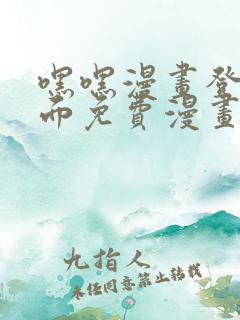 嘿嘿漫畫登
币免費漫畫
九指人
未经同意禁止转载